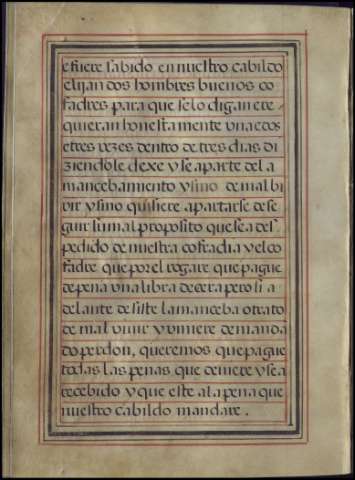 e fuere sabido en nuestro cabildo
elijan dos hombres buenos co
fadres para que se lo digan e re
quieran honestamente una e dos
e tres vezes dentro de tres dias di
ziendole dexe y se aparte del a
mancebamiento y sino de mal bi
vir y sino quisiere apartarse de se
guir su mal proposito que sea des
pedido de nuestra cofradia y el co
fadre que por el rogare que pague
de pena una libra de cera pero si a
delante desiste la manceba o trato
de mal vivir y viniere demanda
do perdon, queremos que pague
todas las penas que deviere y sea
recebido y que este a la pena que
nuestro cabildo mandare.